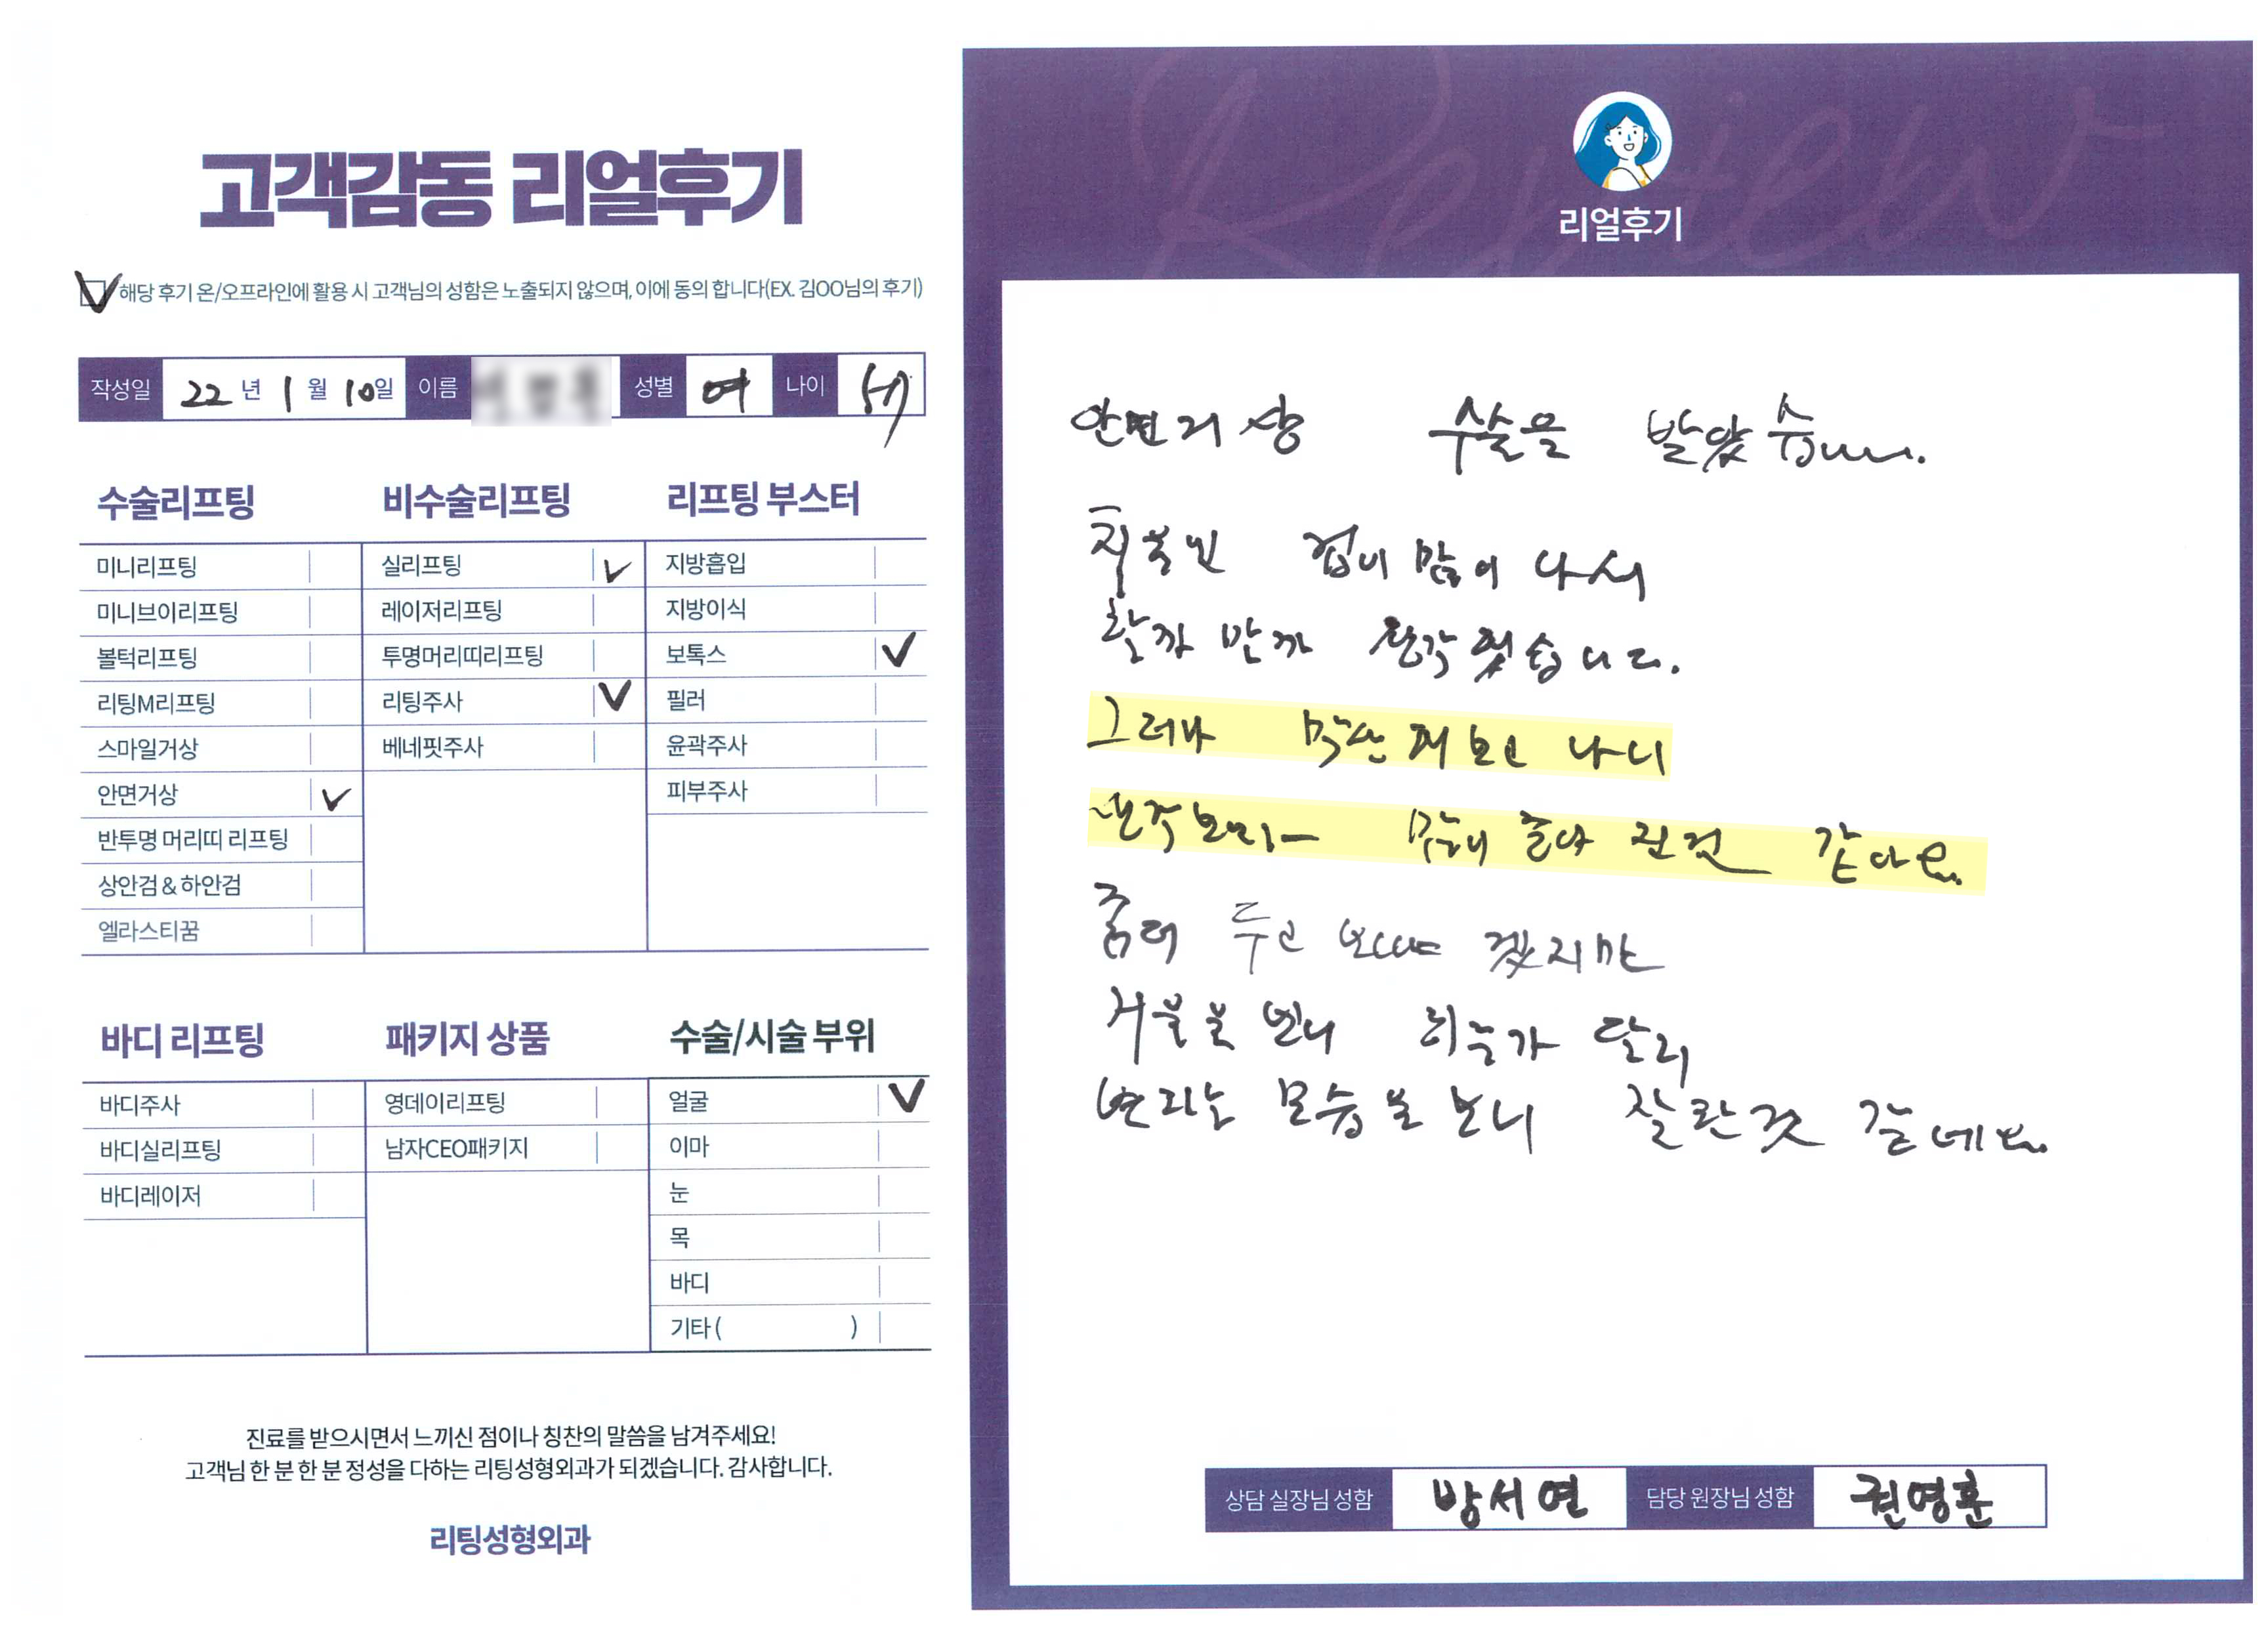 고객감동 리얼후기
해당 후기 온/오프라인에 활용 시 고객님의 성함은 노출되지 않으며, 이에 동의 합니다(EX. 김OO님의 후기)
작성일 22 년 1 월 10일 이름 성별 여 나이
수술리프팅
미니리프팅
미니브이리프팅
볼턱리프팅
리팅M리프팅
스마일거상
안면거상
반투명 머리띠 리프팅
상안검 & 하안검
엘라스티꿈
비수술리프팅
실리프팅
레이저리프팅
투명머리띠리프팅
리팅주사
베네핏주사
리프팅 부스터
지방흡입
지방이식
보톡스
필러
윤곽주사
피부주사
바디 리프팅
바디주사
바디실리프팅
바디레이저
패키지 상품
영데이리프팅
남자CEO패키지
수술/시술 부위
얼굴
이마
눈
목
바디
기타 ( )
진료를 받으시면서 느끼신 점이나 칭찬의 말씀을 남겨주세요!
고객님 한 분 한 분 정성을 다하는 리팅성형외과가 되겠습니다. 감사합니다.
리팅성형외과
Review
리얼후기
안면거상 수술을 받았습니다.
처음엔 겁이 많이 나서
할까 말까 생각했습니다.
그러나 막상 해보고 나니
생각보다 많이 좋아 진것 같아요.
좀더 두고 보아야 겠지만
거울을 보니 하루가 달리
변하는 모습을 보니 잘한것 같네요.
상담 실장님 성함 방서연 담당 원장님 성함 권영훈